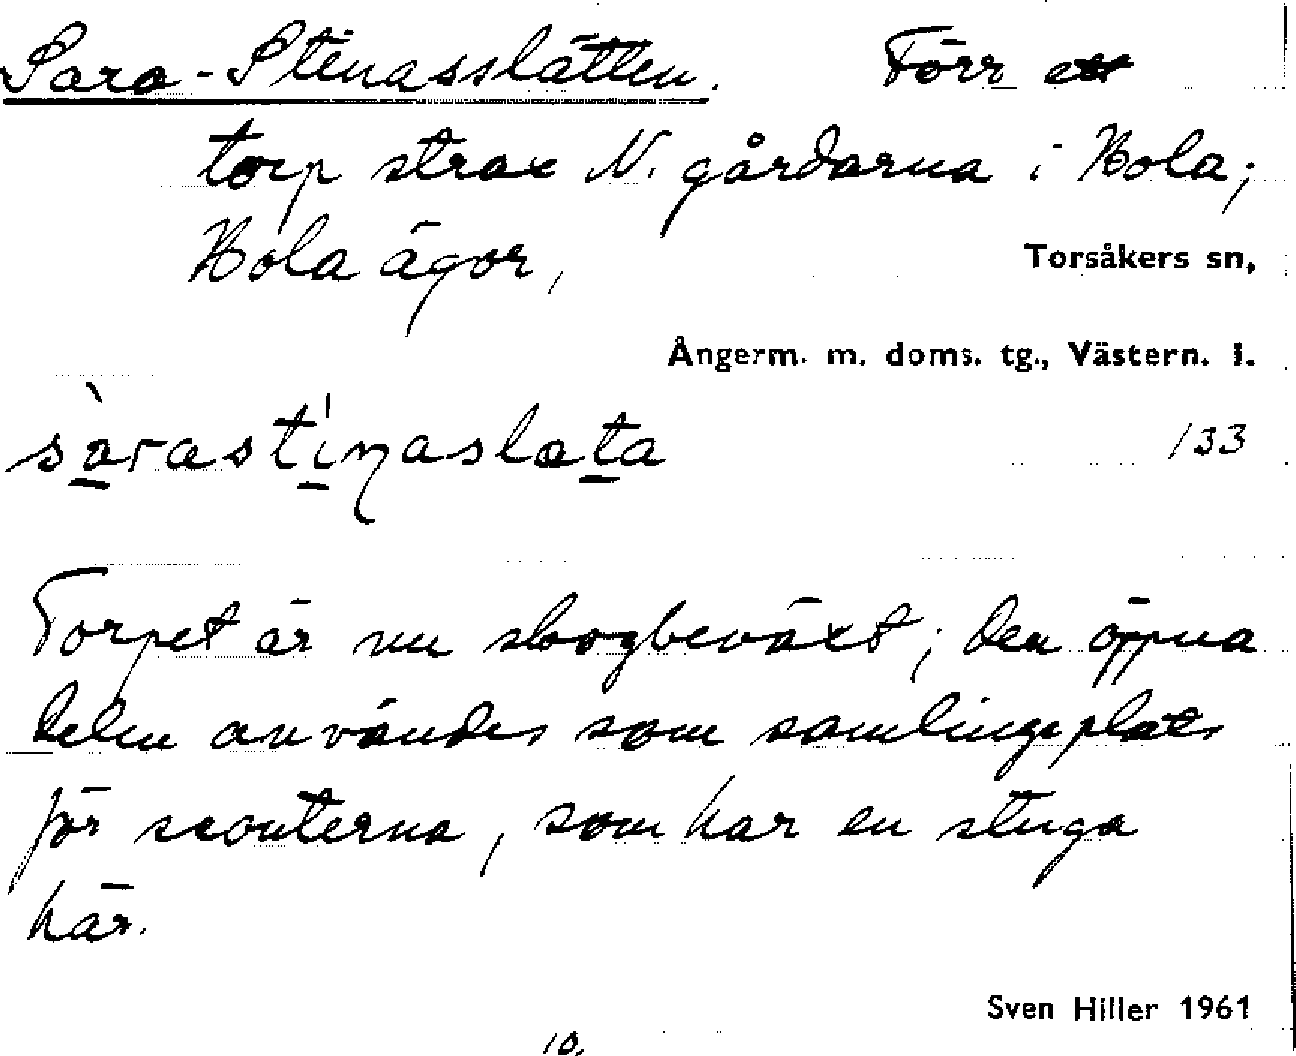 Sara-Stinasslätten. Förr ett
torp strax N. gårdarna i Hola;
Hola ägor,
Torsåkers sn,
Ångerm. m. doms. tg., Västern. l.
sàrastinaslata
133
Torpet är nu skogbeväxt; den öppna
delen användes som samlingsplats
för scouterna, som har en stuga
här.
Sven Hiller 1961
10.